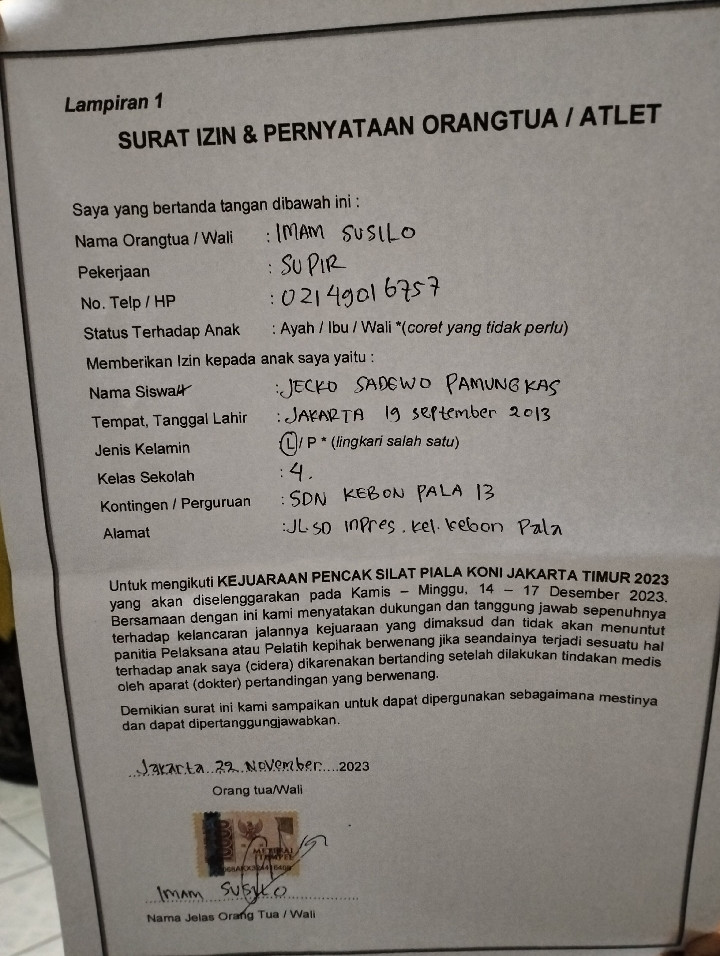 Lampiran 1
SURAT IZIN & PERNYATAAN ORANGTUA / ATLET
Saya yang bertanda tangan dibawah ini :
Nama Orangtua / Wali : IMAM SUSILO
Pekerjaan : SUPIR
No. Telp / HP : 02149016757
Status Terhadap Anak : Ayah / Ibu / Wali *(coret yang tidak perlu)
Memberikan Izin kepada anak saya yaitu :
Nama Siswa/i : JECKO SADEWO PAMUNGKAS
Tempat, Tanggal Lahir : JAKARTA 19 september 2013
Jenis Kelamin : L / P * (lingkari salah satu)
Kelas Sekolah : 4.
Kontingen / Perguruan : SDN KEBON PALA 13
Alamat : JL SD inpres . kel. kebon Pala
Untuk mengikuti KEJUARAAN PENCAK SILAT PIALA KONI JAKARTA TIMUR 2023
yang akan diselenggarakan pada Kamis – Minggu, 14 – 17 Desember 2023.
Bersamaan dengan ini kami menyatakan dukungan dan tanggung jawab sepenuhnya
terhadap kelancaran jalannya kejuaraan yang dimaksud dan tidak akan menuntut
panitia Pelaksana atau Pelatih kepihak berwenang jika seandainya terjadi sesuatu hal
terhadap anak saya (cidera) dikarenakan bertanding setelah dilakukan tindakan medis
oleh aparat (dokter) pertandingan yang berwenang.
Demikian surat ini kami sampaikan untuk dapat dipergunakan sebagaimana mestinya
dan dapat dipertanggungjawabkan.
Jakarta 22 November 2023
Orang tua/Wali
10000
METERAI
TEMPEL
IMAM SUSILO
Nama Jelas Orang Tua / Wali